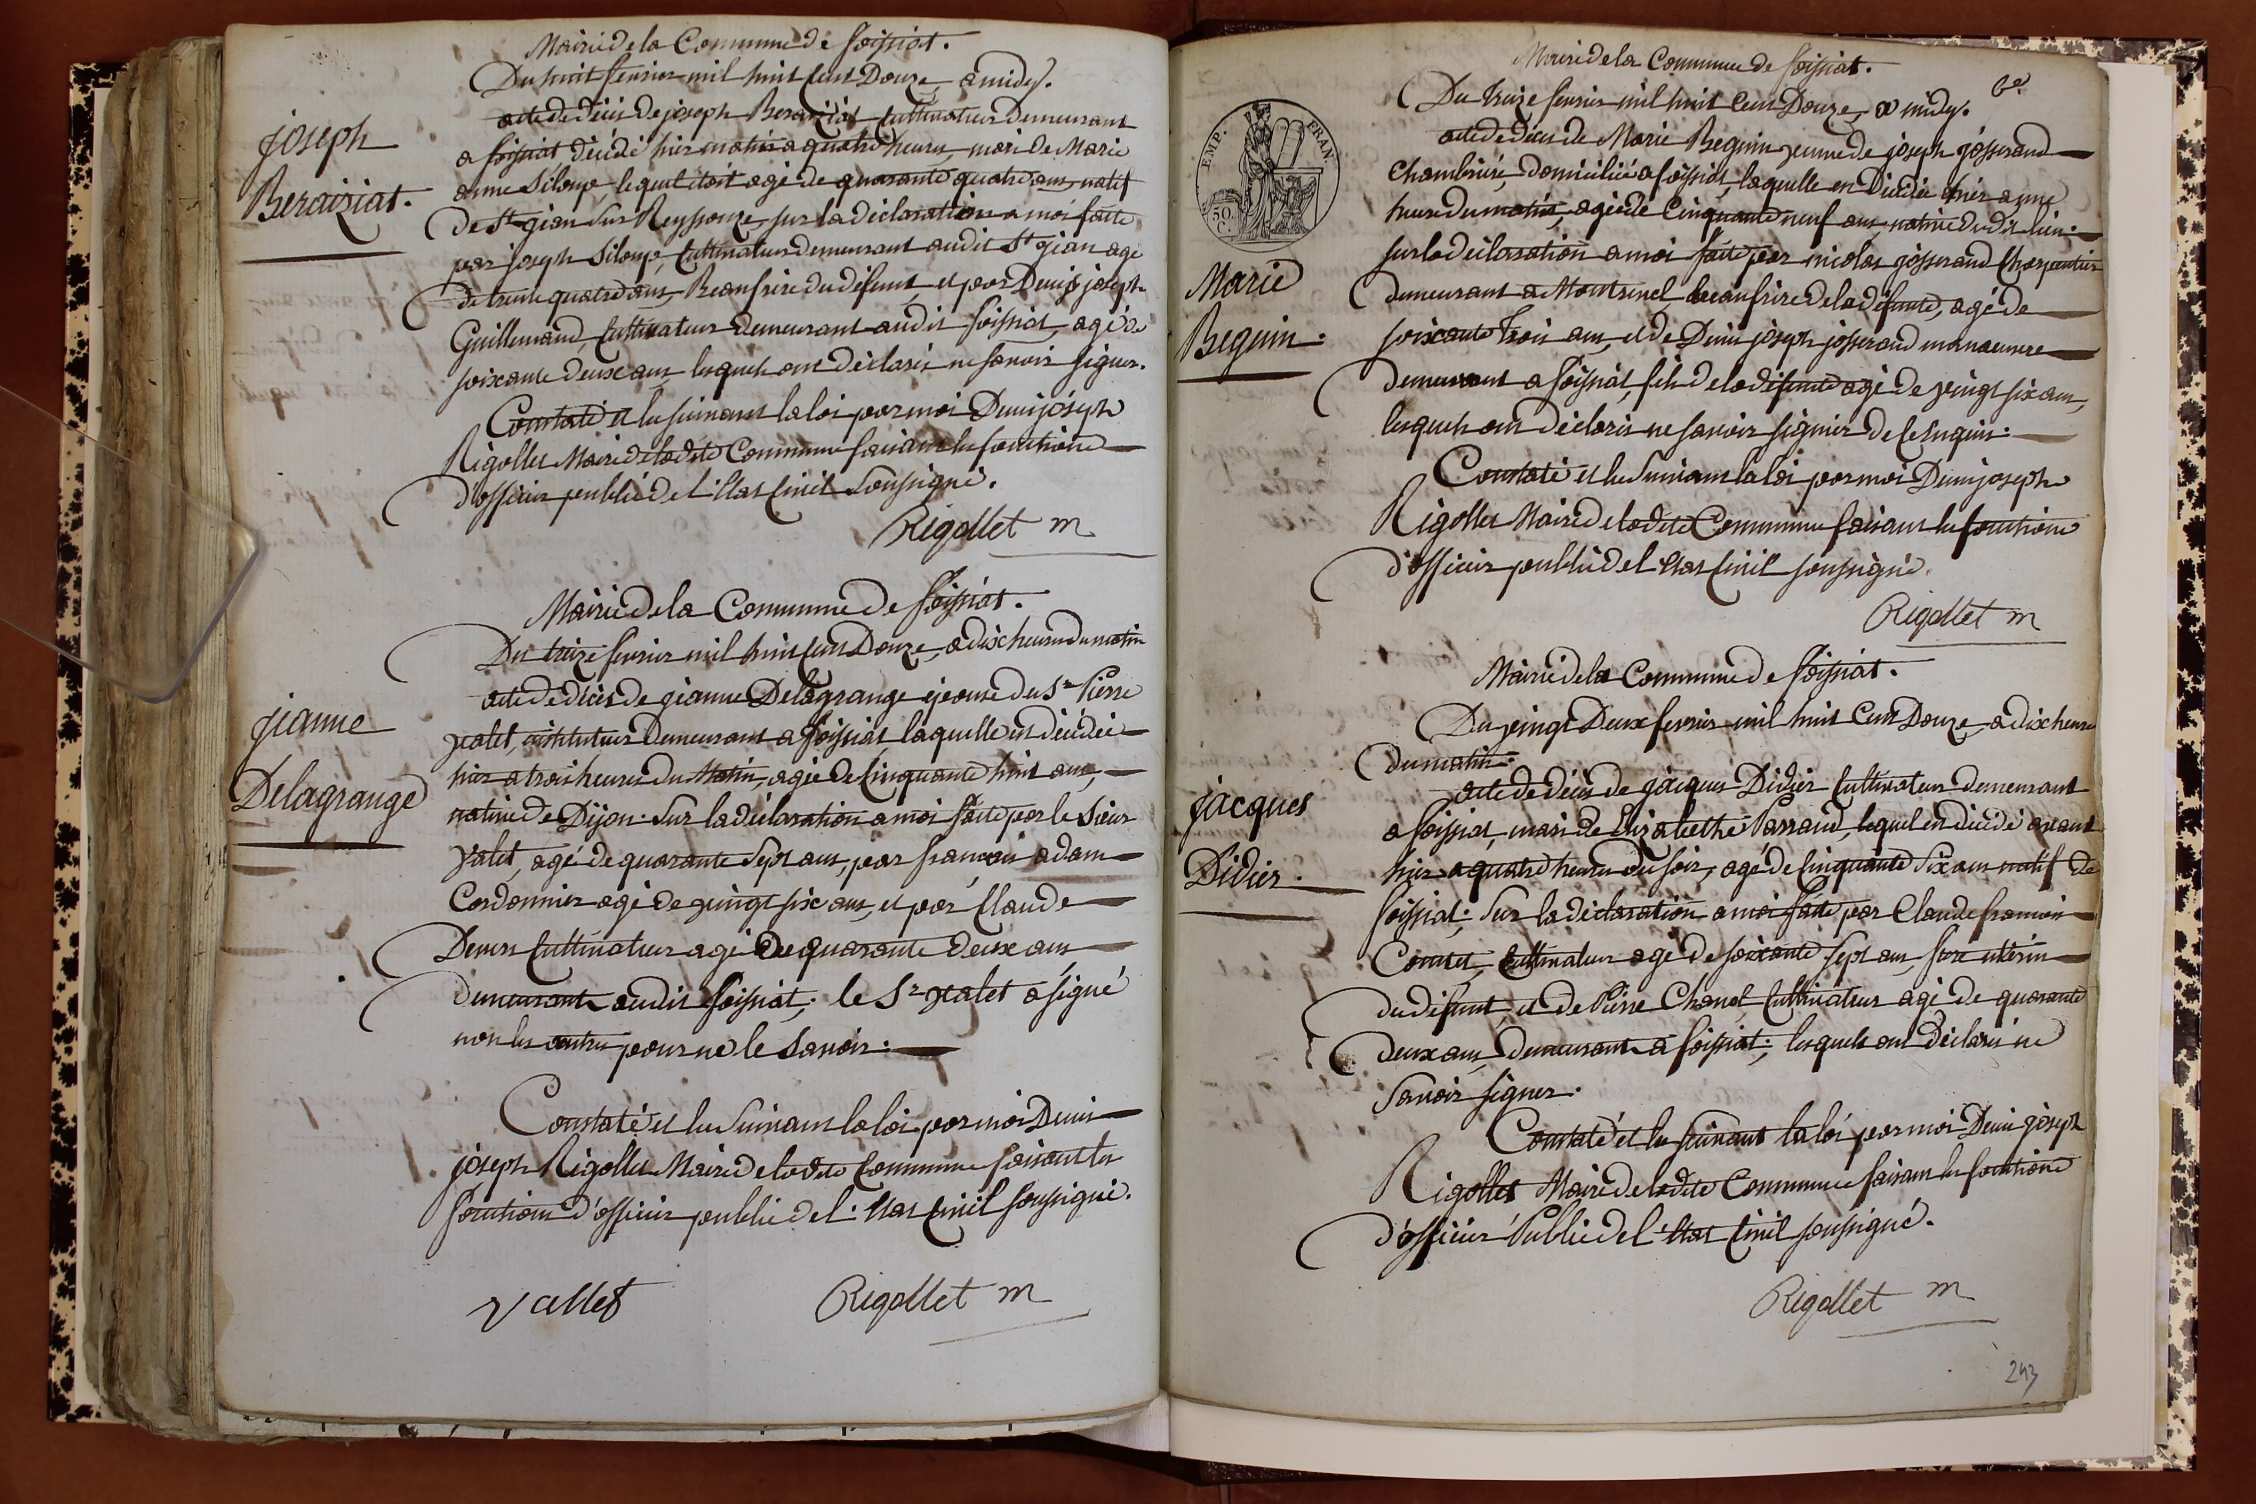 Mairie de la Commune de foissiat.
Du huit fevrier mil huit cent Douze, a midy.
acte de décés de joseph Beraiziat Cultivateur Demeurant
a foissiat décédé hier matin a quatre heures, mari de Marie
anne Siloup, lequel étoit agé de quarante quatre ans, natif
De St gian sur Reyssouze, sur la déclaration a moi faite
par joseph Siloup, Cultivateur demeurant audit St gian agé
de trente quatre ans, Beaufrere du défunt, et par Denis joseph
Guillemaud, Cultivateur demeurant audit foissiat, agé de
soixante deux ans, lesquels ont déclarés ne savoir signer.
Constaté et lu suivant la loi par moi Denis joseph
Rigollet Maire de ladite Commune faisant les fonctions
d'officier public de l'état Civil soussigné.
Rigollet m
joseph
Beraiziat.
Mairie de la Commune de foissiat.
Du treize fevrier mil huit Cent Douze, a dix heures du matin
acte de décés de gianne Delagrange épouse du Sr Pierre
valet, instituteur Demeurant a foissiat, laquelle est décédée
hier a trois heures du Matin, agée de Cinquante huit ans,
native de Dijon. Sur la déclaration a moi faite par le Sieur
Valet, agé de quarante Sept ans, par francois adam
Cordonnier agé de vingt six ans, et par Claude
Cultivateur agé de quarante deux ans
Demeurants audit foissiat; le Sr valet a signé
non les autres pour ne le savoir.
Constaté et lu Suivant la loi par moi Denis
joseph Rigollet Maire de ladite Commune faisant les
fonctions d'officier public de l'état Civil soussigné.
vallet Rigollet m
gianne
Delagrange
Mairie de la Commune de foissiat.
Du treize fevrier mil huit Cent Douze, a midy.
acte de décés de Marie Beguin veuve de joseph josserand
Chambriere, domiciliée a foissiat, laquelle est décédée hier a une
heure du matin, agée de Cinquante neuf ans, native dudit lieu;
sur la déclaration a moi faite par nicolas josserand Charpentier
demeurant a Montrevel beaufrere de la défunte, agé de
soixante trois ans, et de Denis joseph josserand manoeuvre
demeurant a foissiat, fils de la défunte agé de vingt six ans,
lesquels ont déclarés ne savoir signer de ce enquis.
Constaté et lu Suivant la loi par moi Denis joseph
Rigollet Maire de ladite Commune faisant les fonctions
d'officier public de l'état Civil soussigné.
Rigollet m
EMP. FRAN.
50.
C.
Marie
Beguin.
Mairie de la Commune de foissiat.
Du vingt Deux fevrier mil huit Cent Douze, a dix heures
du matin.
acte de décés de jacques Didier Cultivateur demeurant
a foissiat, mari de Elizabethe Parraud, lequel est décédé avant
hier a quatre heures du soir, agé de Cinquante Six ans natif de
foissiat; Sur la déclaration a moi faite par Claude francois
Comtet, Cultivateur agé de soixante Sept ans, frere utérin
du défunt, et de Pierre Chanel, Cultivateur agé de quarante
deux ans, demeurants a foissiat; lesquels ont déclaré ne
Savoir signer.
Constaté et lu suivant la loi par moi Denis joseph
Rigollet Maire de ladite Commune faisant les fonctions
d'officier Public de l'état Civil soussigné.
Rigollet m
jacques
Didier.
243